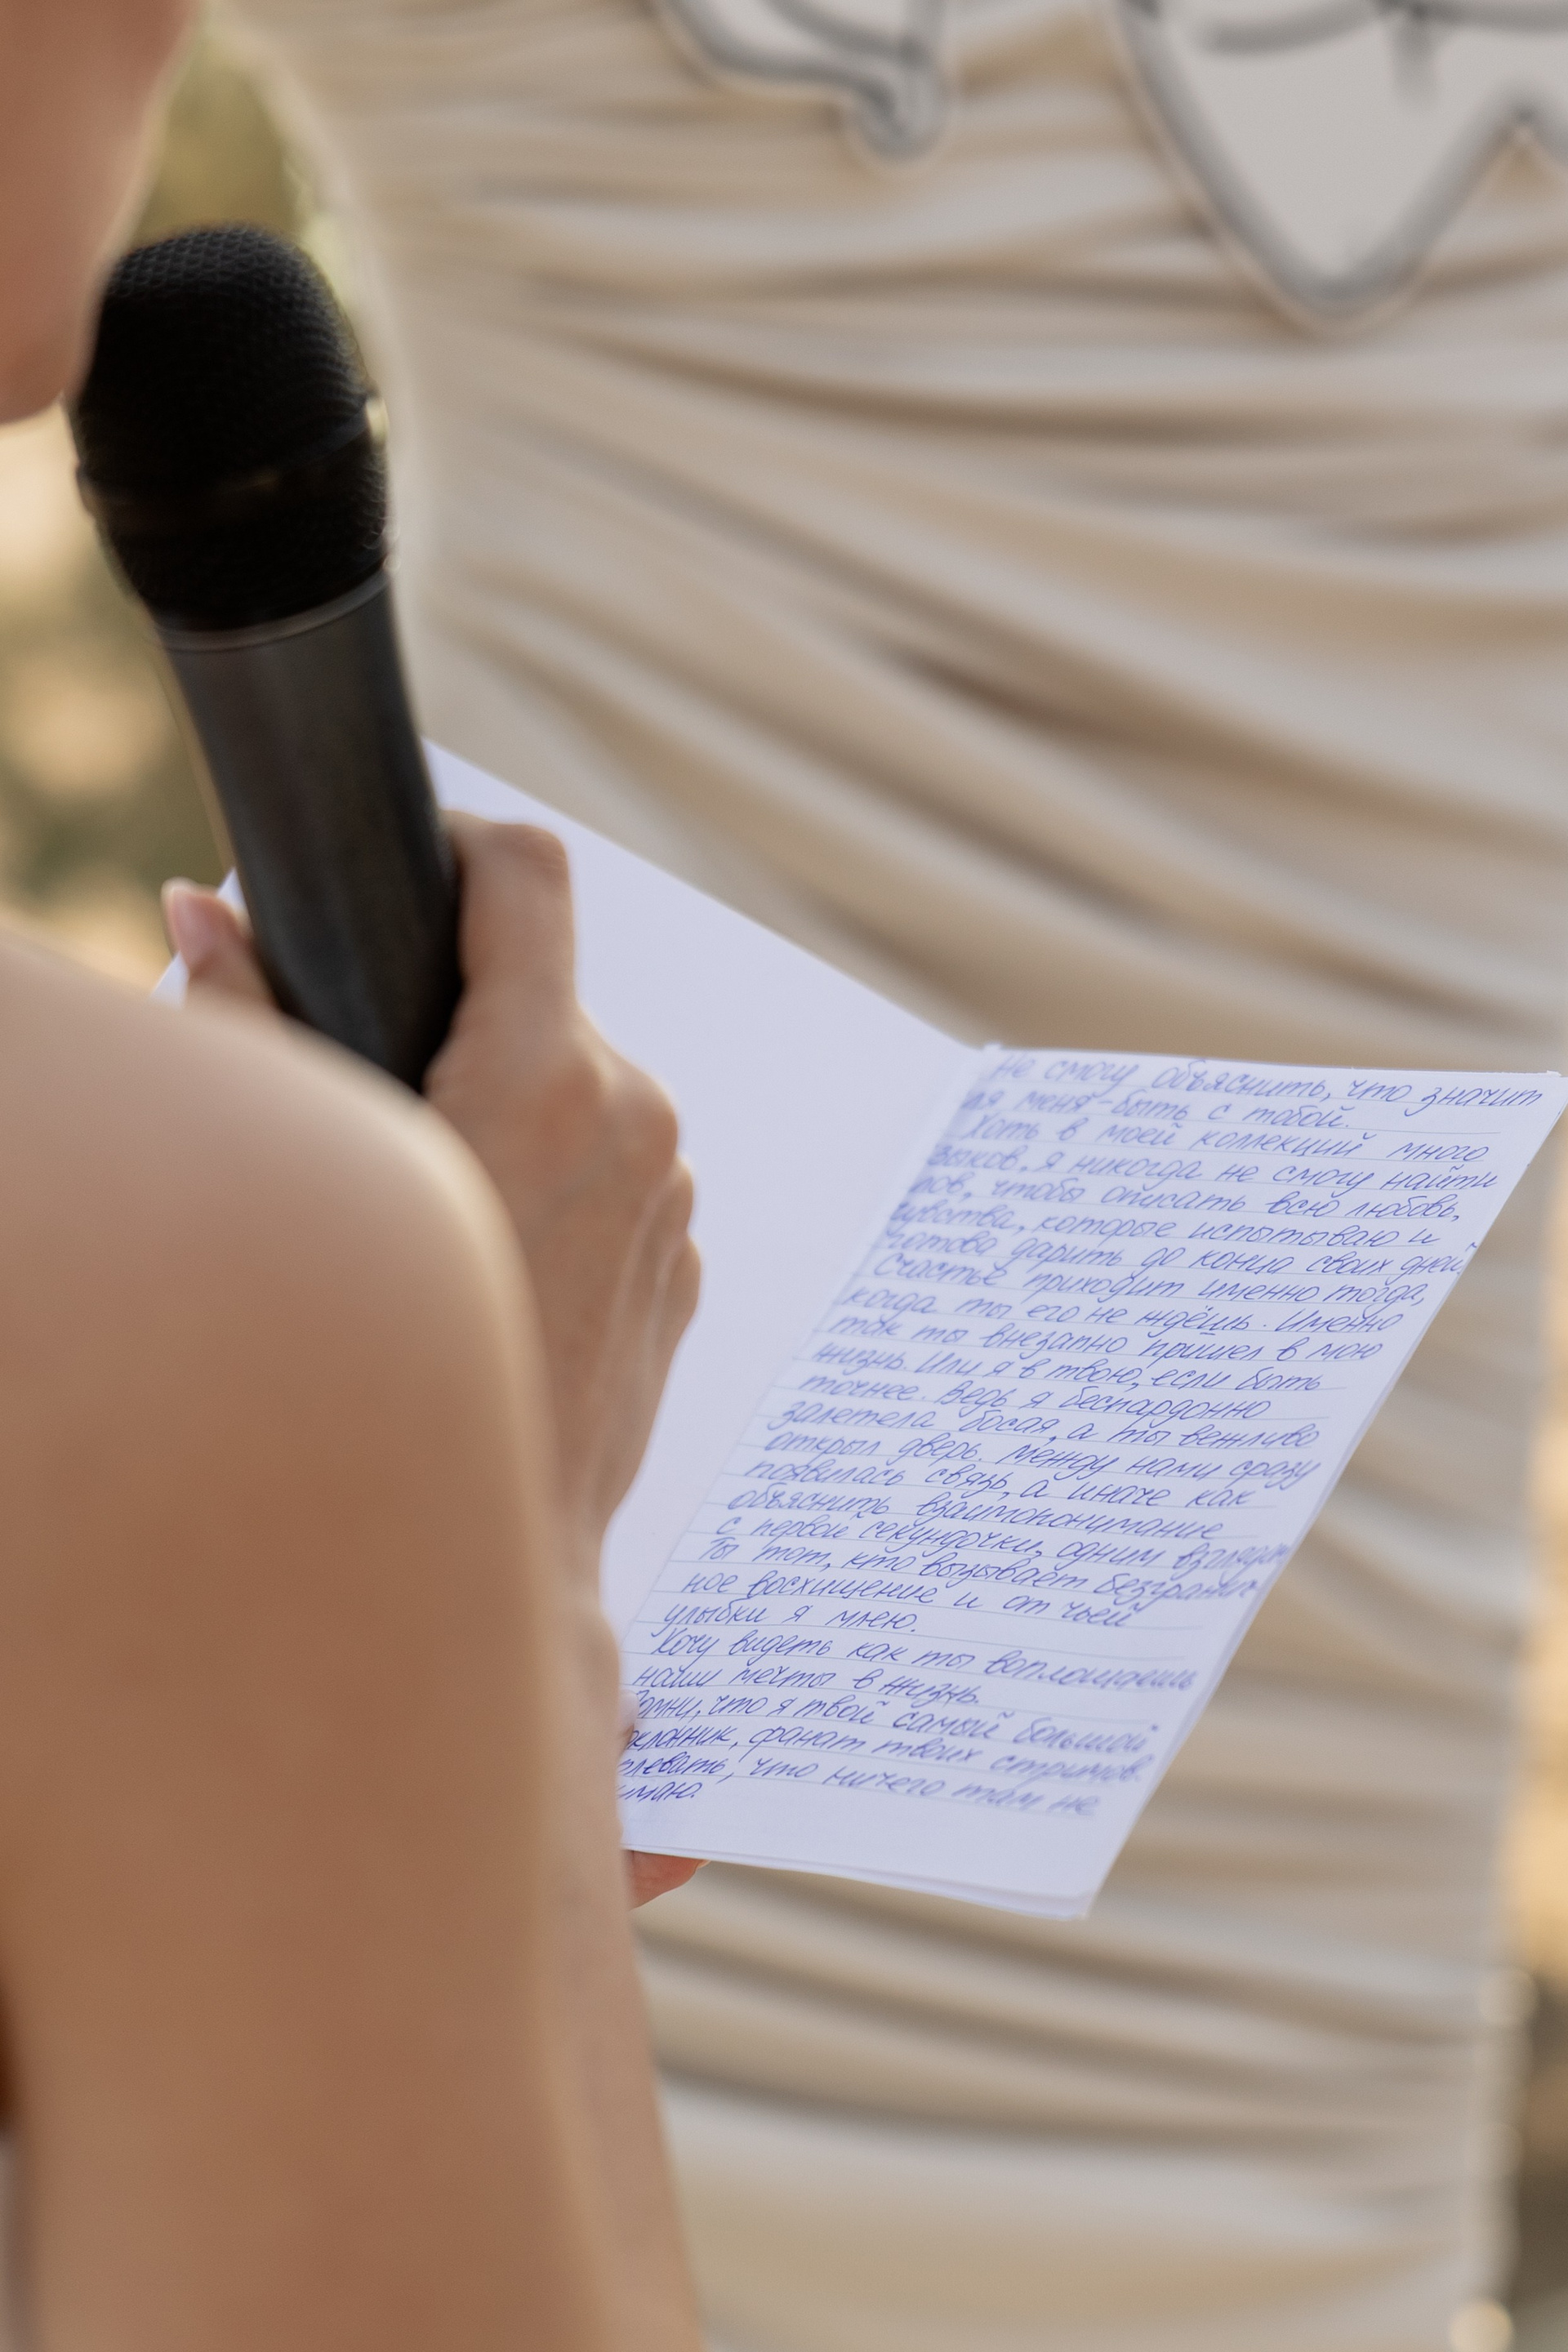 Не смогу объяснить, что значит
ля меня - быть с тобой.
Хоть в моей коллекций много
зыков, я никогда не смогу найти
лов, чтобы описать всю любовь,
чувства, которые испытываю и
готова дарить до конца своих дней.
Счастье приходит именно тогда,
когда ты его не ждёшь. Именно
так ты внезапно пришел в мою
жизнь. Или я в твою, если быть
точнее. Ведь я беспардонно
залетела босая, а ты вежливо
открыл дверь. Между нами сразу
появилась связь, а иначе как
объяснить взаимопонимание
с первой секундочки, одним взглядом
Ты тот, кто вызывает безгранич
ное восхищение и от чьей
улыбки я млею.
Хочу видеть как ты воплощаешь
наши мечты в жизнь.
Помни, что я твой самый большой
оклонник, фанат твоих стримов.
левать, что ничего там не
имаю.